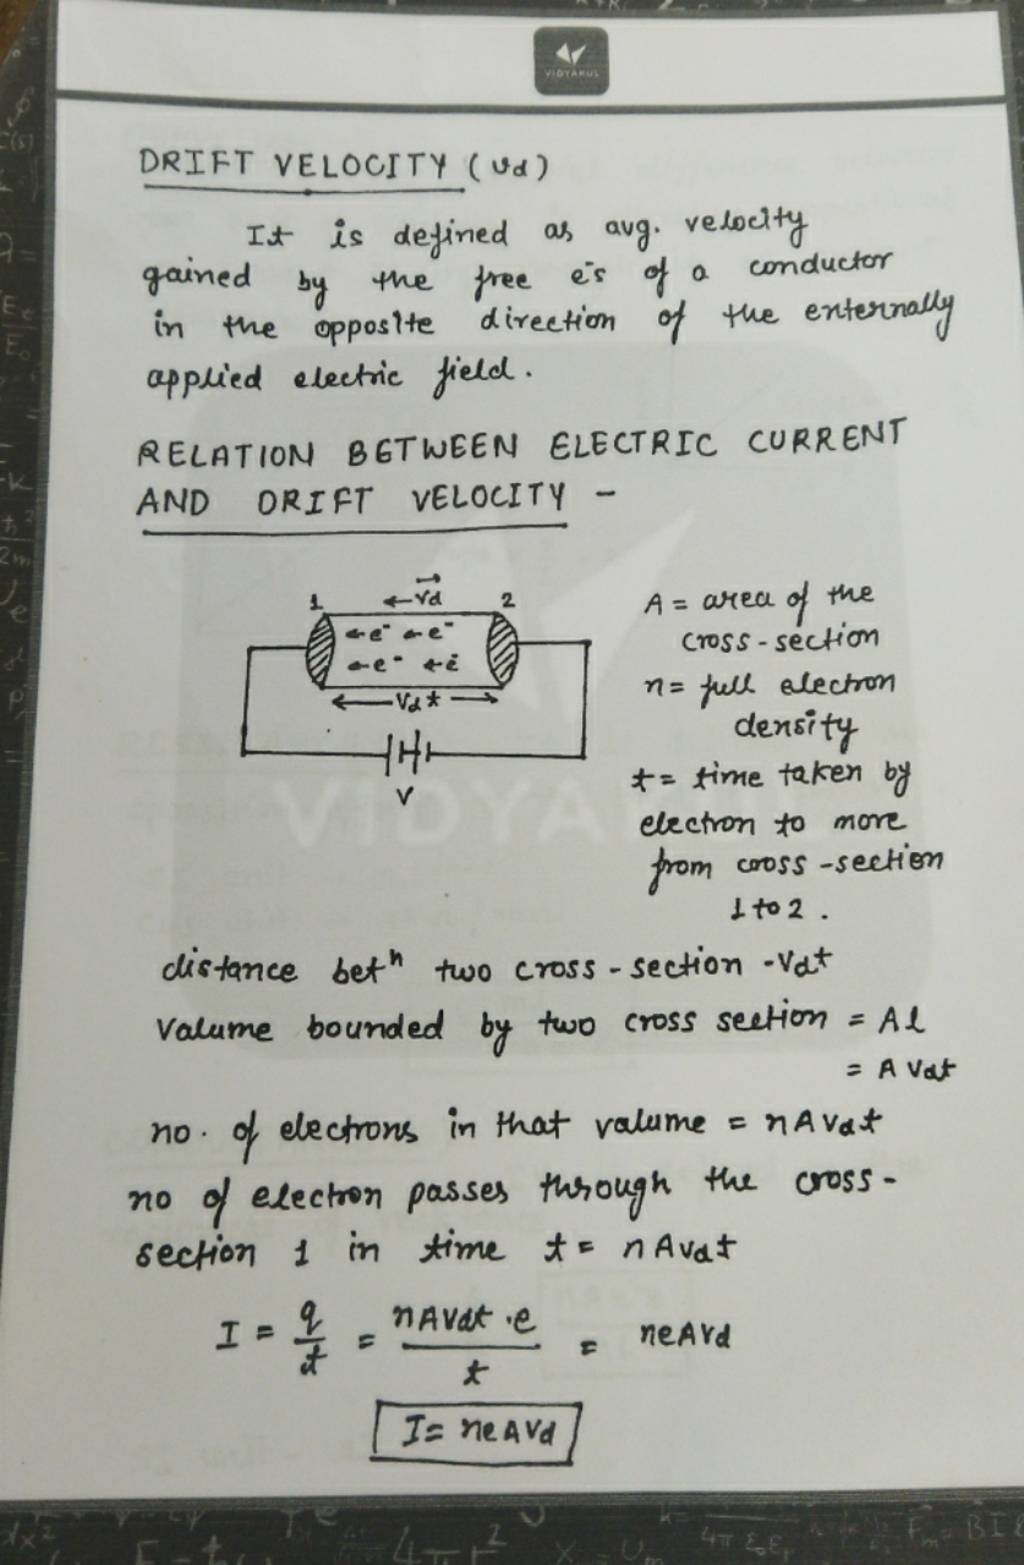 VIDYAKUL
DRIFT VELOCITY (vd)
It is defined as avg. velocity
gained by the free e⁻s of a conductor
in the opposite direction of the enternally
applied electric field.
RELATION BETWEEN ELECTRIC CURRENT
AND DRIFT VELOCITY -
1 ← v⃗d 2
←e⁻ ←e⁻
←e⁻ ←e⁻
← Vdt →
V
A = area of the
cross-section
n = full electron
density
t = time taken by
electron to more
from cross-section
1 to 2 .
VIDYAKUL
distance betⁿ two cross-section -Vdt
Valume bounded by two cross section = Al
= A Vdt
no. of electrons in that valume = nAVdt
no of electron passes through the cross-
section 1 in time t = nAVdt
I = q/t = nAVdt·e/t = neAVd
I = neAVd